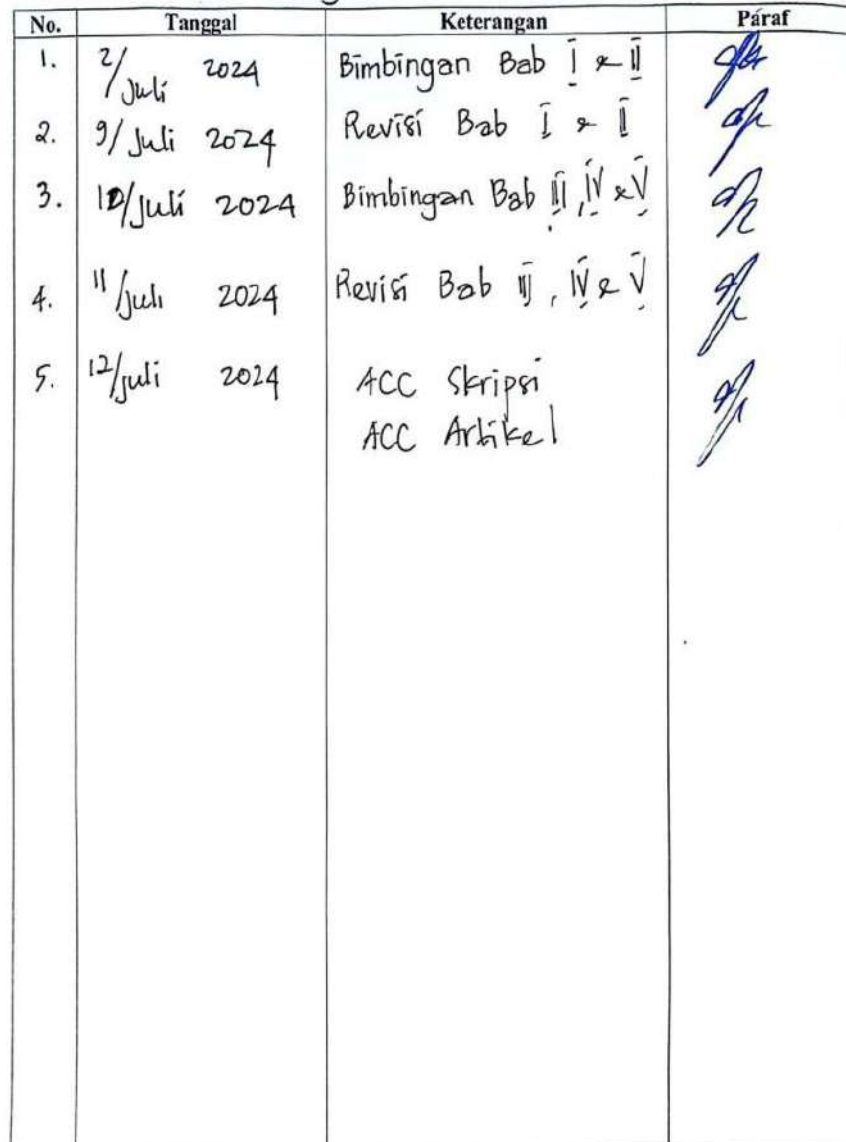 No. Tanggal Keterangan Paraf
1. 2/Juli 2024 Bimbingan Bab I & II
2. 9/Juli 2024 Revisi Bab I & II
3. 10/Juli 2024 Bimbingan Bab III, IV & V
4. 11/Juli 2024 Revisi Bab III, IV & V
5. 12/Juli 2024 ACC Skripsi
ACC Artikel